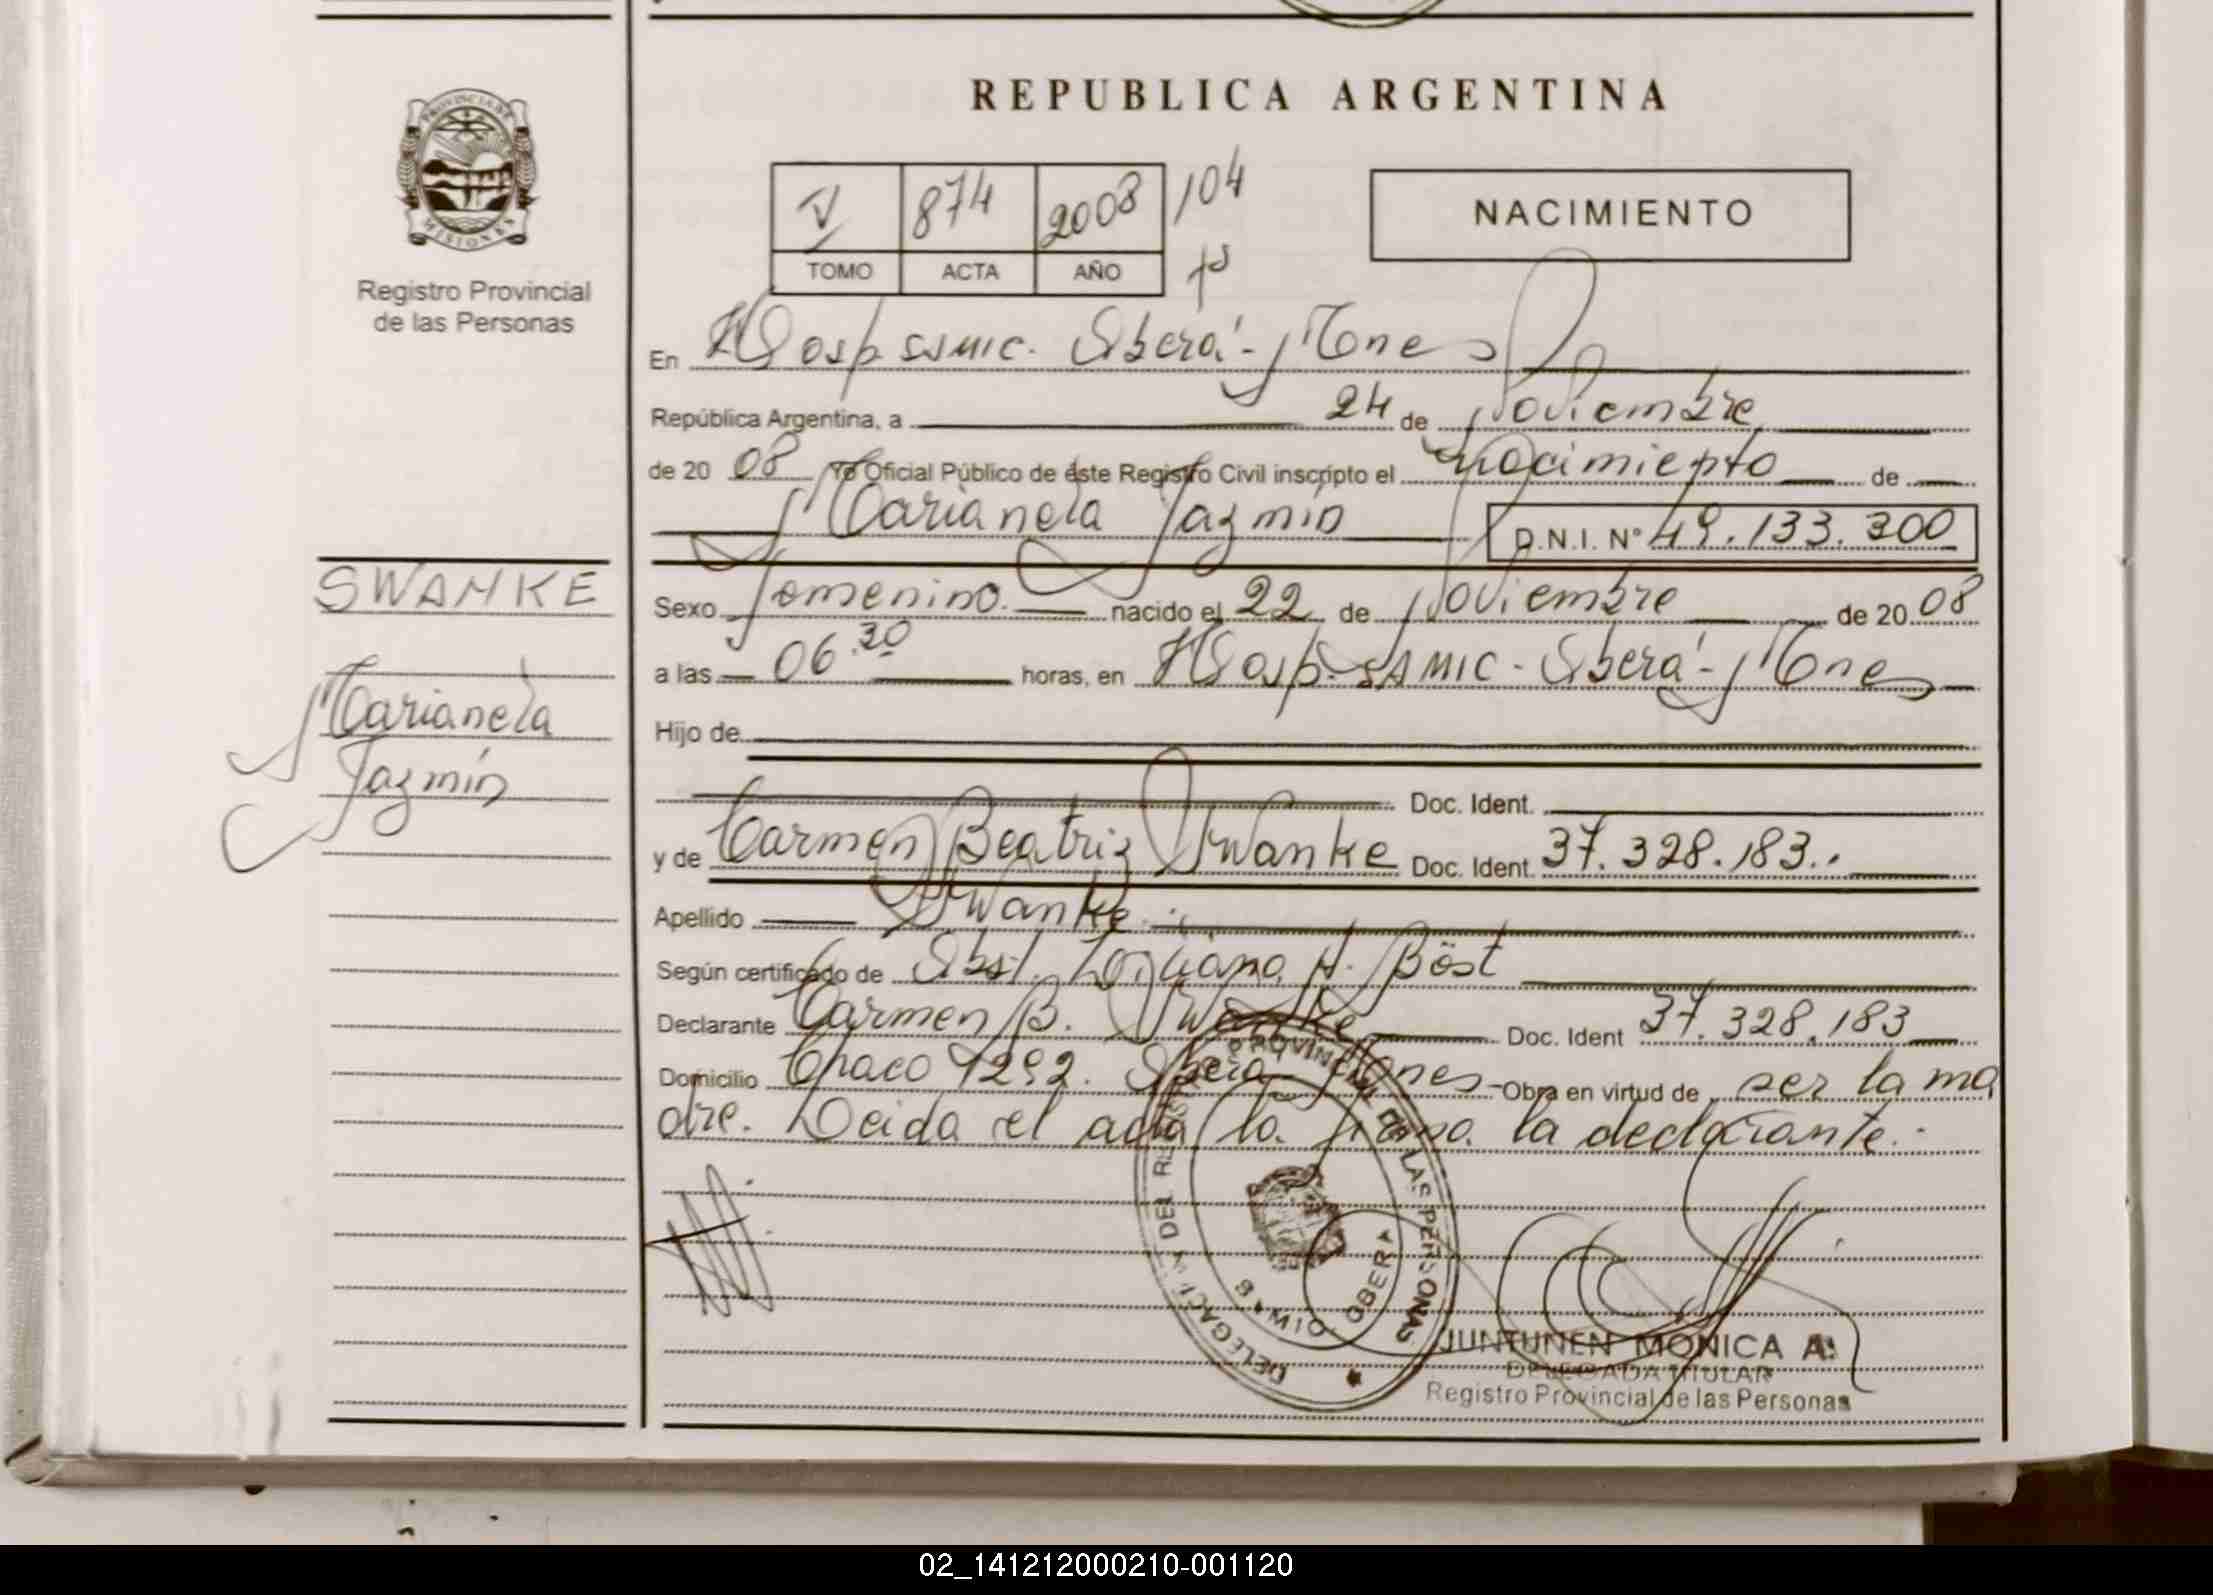 REPUBLICA ARGENTINA
PROVINCIA DE
MISIONES
Registro Provincial
de las Personas
V 874 2008 104
TOMO ACTA AÑO
NACIMIENTO
En Hosp. SAMIC. Oberá - Mnes
República Argentina, a 24 de Noviembre
de 20 08 Yo Oficial Público de éste Registro Civil inscripto el nacimiento de
Marianela Jazmín D.N.I. Nº 49.133.300
SWANKE
Marianela
Jazmín
Sexo Femenino. nacido el 22 de Noviembre de 20 08
a las 06.30 horas, en Hosp. SAMIC - Oberá - Mnes
Hijo de
Doc. Ident.
y de Carmen Beatriz Swanke Doc. Ident. 37.328.183..
Apellido Swanke.
Según certificado de Obst. H. Böst
Declarante Carmen B. Swanke Doc. Ident 37.328.183
Domicilio Chaco 1292. Oberá - Mnes - Obra en virtud de ser la ma
dre. Leida el acta la firma la declarante.-
DELEGACION DEL REGISTRO PROVINCIAL DE LAS PERSONAS
OBERA
JUNTUNEN MONICA A.
DELEGADA TITULAR
Registro Provincial de las Personas
02_141212000210-001120